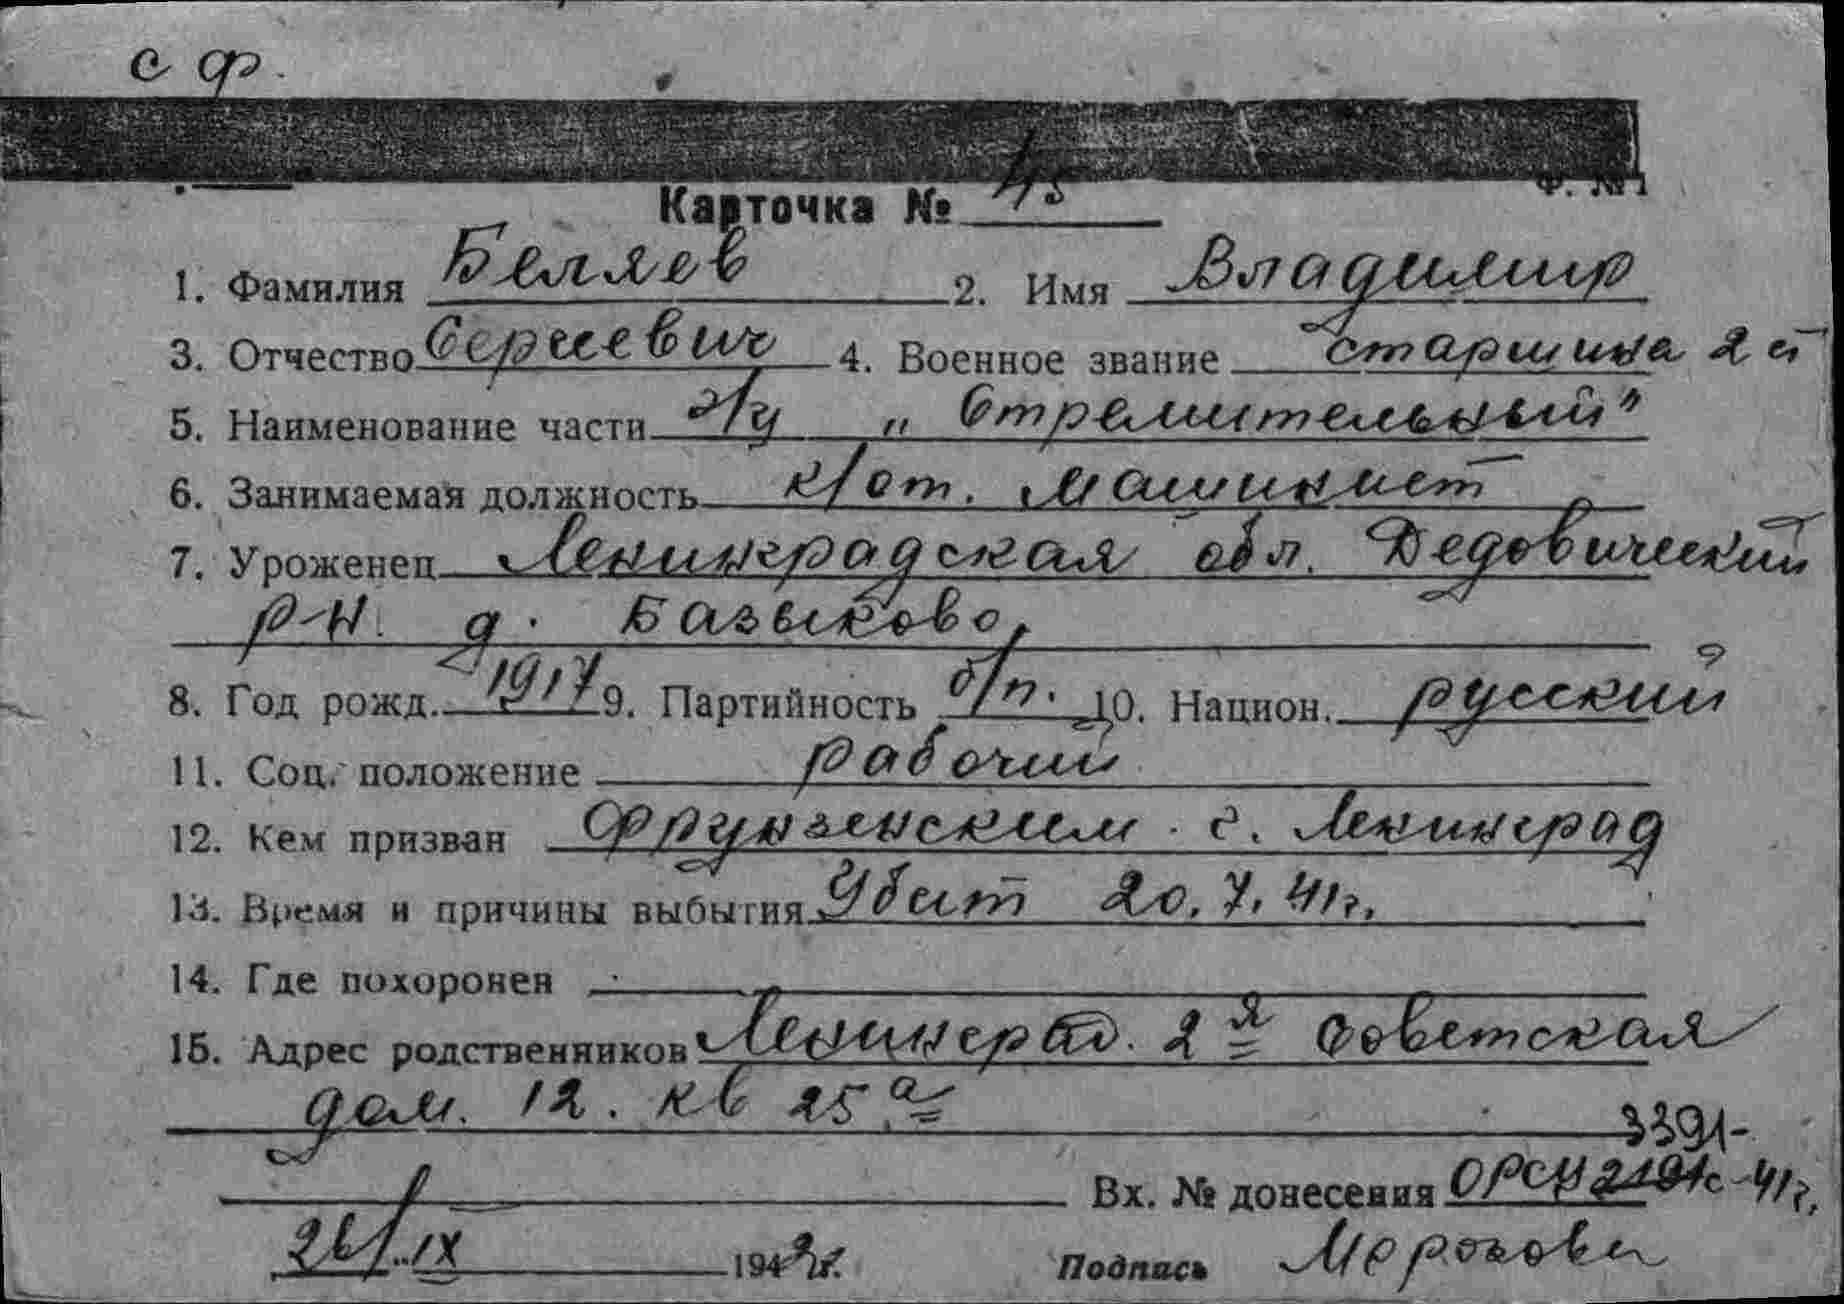 с ф.
Ф. № 1
Карточка № 45
1. Фамилия Беляев 2. Имя Владимир
3. Отчество Сергеевич 4. Военное звание старшина 2 ст
5. Наименование части э/м „Стремительный"
6. Занимаемая должность к/от. машинист
7. Уроженец Ленинградская обл. Дедовический
р-н. д. Базыково,
8. Год рожд. 1917 9. Партийность б/п. 10. Национ. русский
11. Соц. положение рабочий
12. Кем призван Фрунзенским г. Ленинград
13. Время и причины выбытия Убит 20.7.41г.
14. Где похоронен
15. Адрес родственников Ленинград. 2я Советская
дом. 12. кв 25а
3391-
Вх. № донесения ОРСУ 2191с-41г.
26/IX 1942г. Подпись Морозова